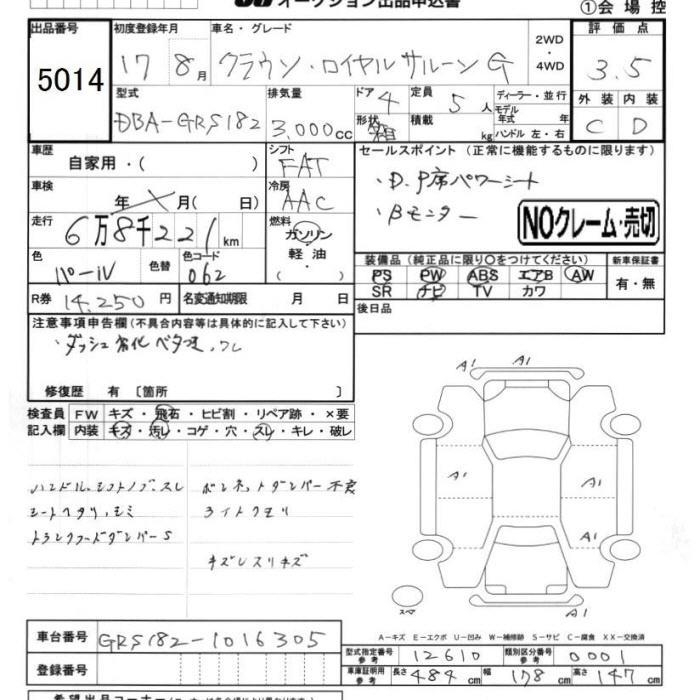 オークション出品申込書
①会場控
出品番号 初度登録年月 車名・グレード 2WD ・4WD 評価点
5014 17 8月 クラウン・ロイヤルサルーン G 3.5
型式 排気量 ドア 4 定員 5人 ディーラー・並行 外装 内装
モデル年式 年
DBA-GRS182 3,000cc 形状 箱 積載 kg ハンドル 左・右 C D
車歴 シフト セールスポイント (正常に機能するものに限ります)
自家用・( ) FAT
車検 冷房 ・D.P席パワーシート
年 月( 日) AAC ・Bモニター
走行 燃料 NOクレーム・売切
6万8千221km ガソリン
軽油
・( )
色 色替 色コード 装備品 (純正品に限り○をつけてください) 新車保証書
パール 062 PS PW ABS エアB AW 有・無
R券 14,250円 名変通知期限 月 日 SR ナビ TV カワ
後日品
注意事項申告欄(不具合内容等は具体的に記入して下さい)
・ダッシュ劣化ベタつき、ワレ
修復歴 有 〔箇所 〕
検査員 FW キズ・飛石・ヒビ割・リペア跡・×要
記入欄 内装 キズ・汚レ・コゲ・穴・スレ・キレ・破レ
ハンドル、シフトノブ、スレ ボンネットダンパー不良
シートヘタリ、シミ ライトクモリ
トランクフードダンパーS
キズレスリキズ
A1 A1 A1
A1 A1
A1
A1
スペア
A-キズ E-エクボ U-凹み W-補修跡 S-サビ C-腐食 XX-交換済
車台番号 GRS182-1016305
型式指定番号 参考 12610 類別区分番号 参考 0001
登録番号 車庫証明用 参考 長さ 484cm 幅 178cm 高さ 147cm